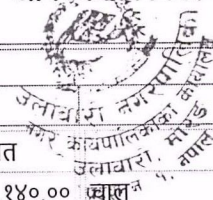 उर्लाबारी नगरपालिका
नगर कार्यपालिकाको कार्यालय
उर्लाबारी, मोरङ
नेपाल
त
१४०.०० चालु